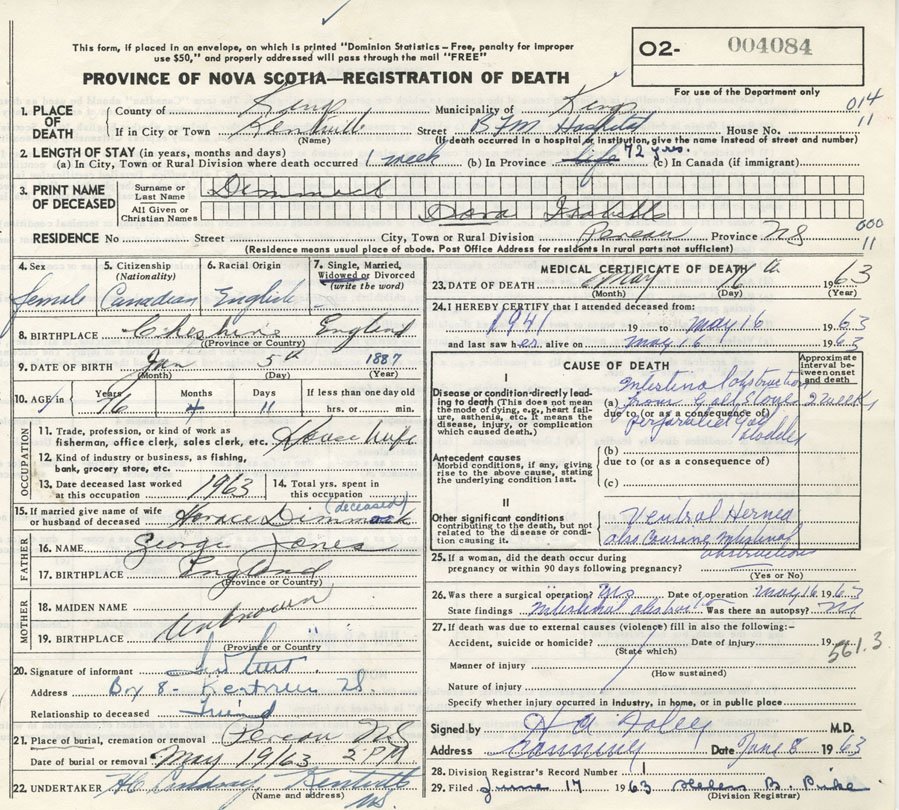 This form, if placed in an envelope, on which is printed "Dominion Statistics – Free, penalty for improper
use $50," and properly addressed will pass through the mail "FREE"
O2- 004084
For use of the Department only
PROVINCE OF NOVA SCOTIA—REGISTRATION OF DEATH
1. PLACE OF DEATH
County of Kings Municipality of Kings 014
If in City or Town Kentville Street BFM Hospital House No. 11
(Name) (If death occurred in a hospital or institution, give the name instead of street and number)
2. LENGTH OF STAY (in years, months and days)
(a) In City, Town or Rural Division where death occurred 1 week (b) In Province life 72 yrs. (c) In Canada (if immigrant)
3. PRINT NAME OF DECEASED
Surname or Last Name Dimmock
All Given or Christian Names Dora Isabelle
000
RESIDENCE No Street City, Town or Rural Division Pereau Province NS 11
(Residence means usual place of abode. Post Office Address for residents in rural parts not sufficient)
4. Sex
female
5. Citizenship (Nationality)
Canadian
6. Racial Origin
English
7. Single, Married, Widowed or Divorced (write the word)
8. BIRTHPLACE Cheshire England
(Province or Country)
9. DATE OF BIRTH Jan 5th 1887
(Month) (Day) (Year)
10. AGE in Years 76 Months 4 Days 11 If less than one day old
hrs. or min.
OCCUPATION
11. Trade, profession, or kind of work as
fisherman, office clerk, sales clerk, etc. House Wife
12. Kind of industry or business, as fishing,
bank, grocery store, etc.
13. Date deceased last worked
at this occupation 1963
14. Total yrs. spent in
this occupation
15. If married give name of wife
or husband of deceased Horace Dimmock (deceased)
FATHER
16. NAME George Jones
17. BIRTHPLACE England
(Province or Country)
MOTHER
18. MAIDEN NAME
Unknown
19. BIRTHPLACE "
(Province or Country)
20. Signature of informant
Address Box 8 - Kentville NS.
Relationship to deceased Friend
21. Place of burial, cremation or removal Pereau NS
Date of burial or removal May 19/63 2 PM
22. UNDERTAKER Kentville NS
(Name and address)
MEDICAL CERTIFICATE OF DEATH
23. DATE OF DEATH May 16 th. 1963
(Month) (Day) (Year)
24. I HEREBY CERTIFY that I attended deceased from:
1941 19 to May 16 1963
and last saw her alive on May 16 1963
CAUSE OF DEATH
Approximate interval between onset and death
I
Disease or condition directly leading to death (This does not mean the mode of dying, e.g., heart failure, asthenia, etc. It means the disease, injury, or complication which caused death.)
Intestinal obstruction
(a) from Gall Stones 2 weeks
due to (or as a consequence of)
perforated Gall Bladder
Antecedent causes
Morbid conditions, if any, giving rise to the above cause, stating the underlying condition last.
(b)
due to (or as a consequence of)
(c)
II
Other significant conditions
contributing to the death, but not related to the disease or condition causing it.
Ventral Hernea
also causing intestinal
obstructions
25. If a woman, did the death occur during
pregnancy or within 90 days following pregnancy?
(Yes or No)
26. Was there a surgical operation? Yes Date of operation May 16 1963
State findings intestinal obstruct. Was there an autopsy? No
27. If death was due to external causes (violence) fill in also the following:-
Accident, suicide or homicide? Date of injury 19
(State which)
561.3
Manner of injury
(How sustained)
Nature of injury
Specify whether injury occurred in industry, in home, or in public place
Signed by H A Foley M.D.
Address Canning Date June 8 1963
28. Division Registrar's Record Number 1
29. Filed June 17 1963 Helen B. Pinke
(Division Registrar)